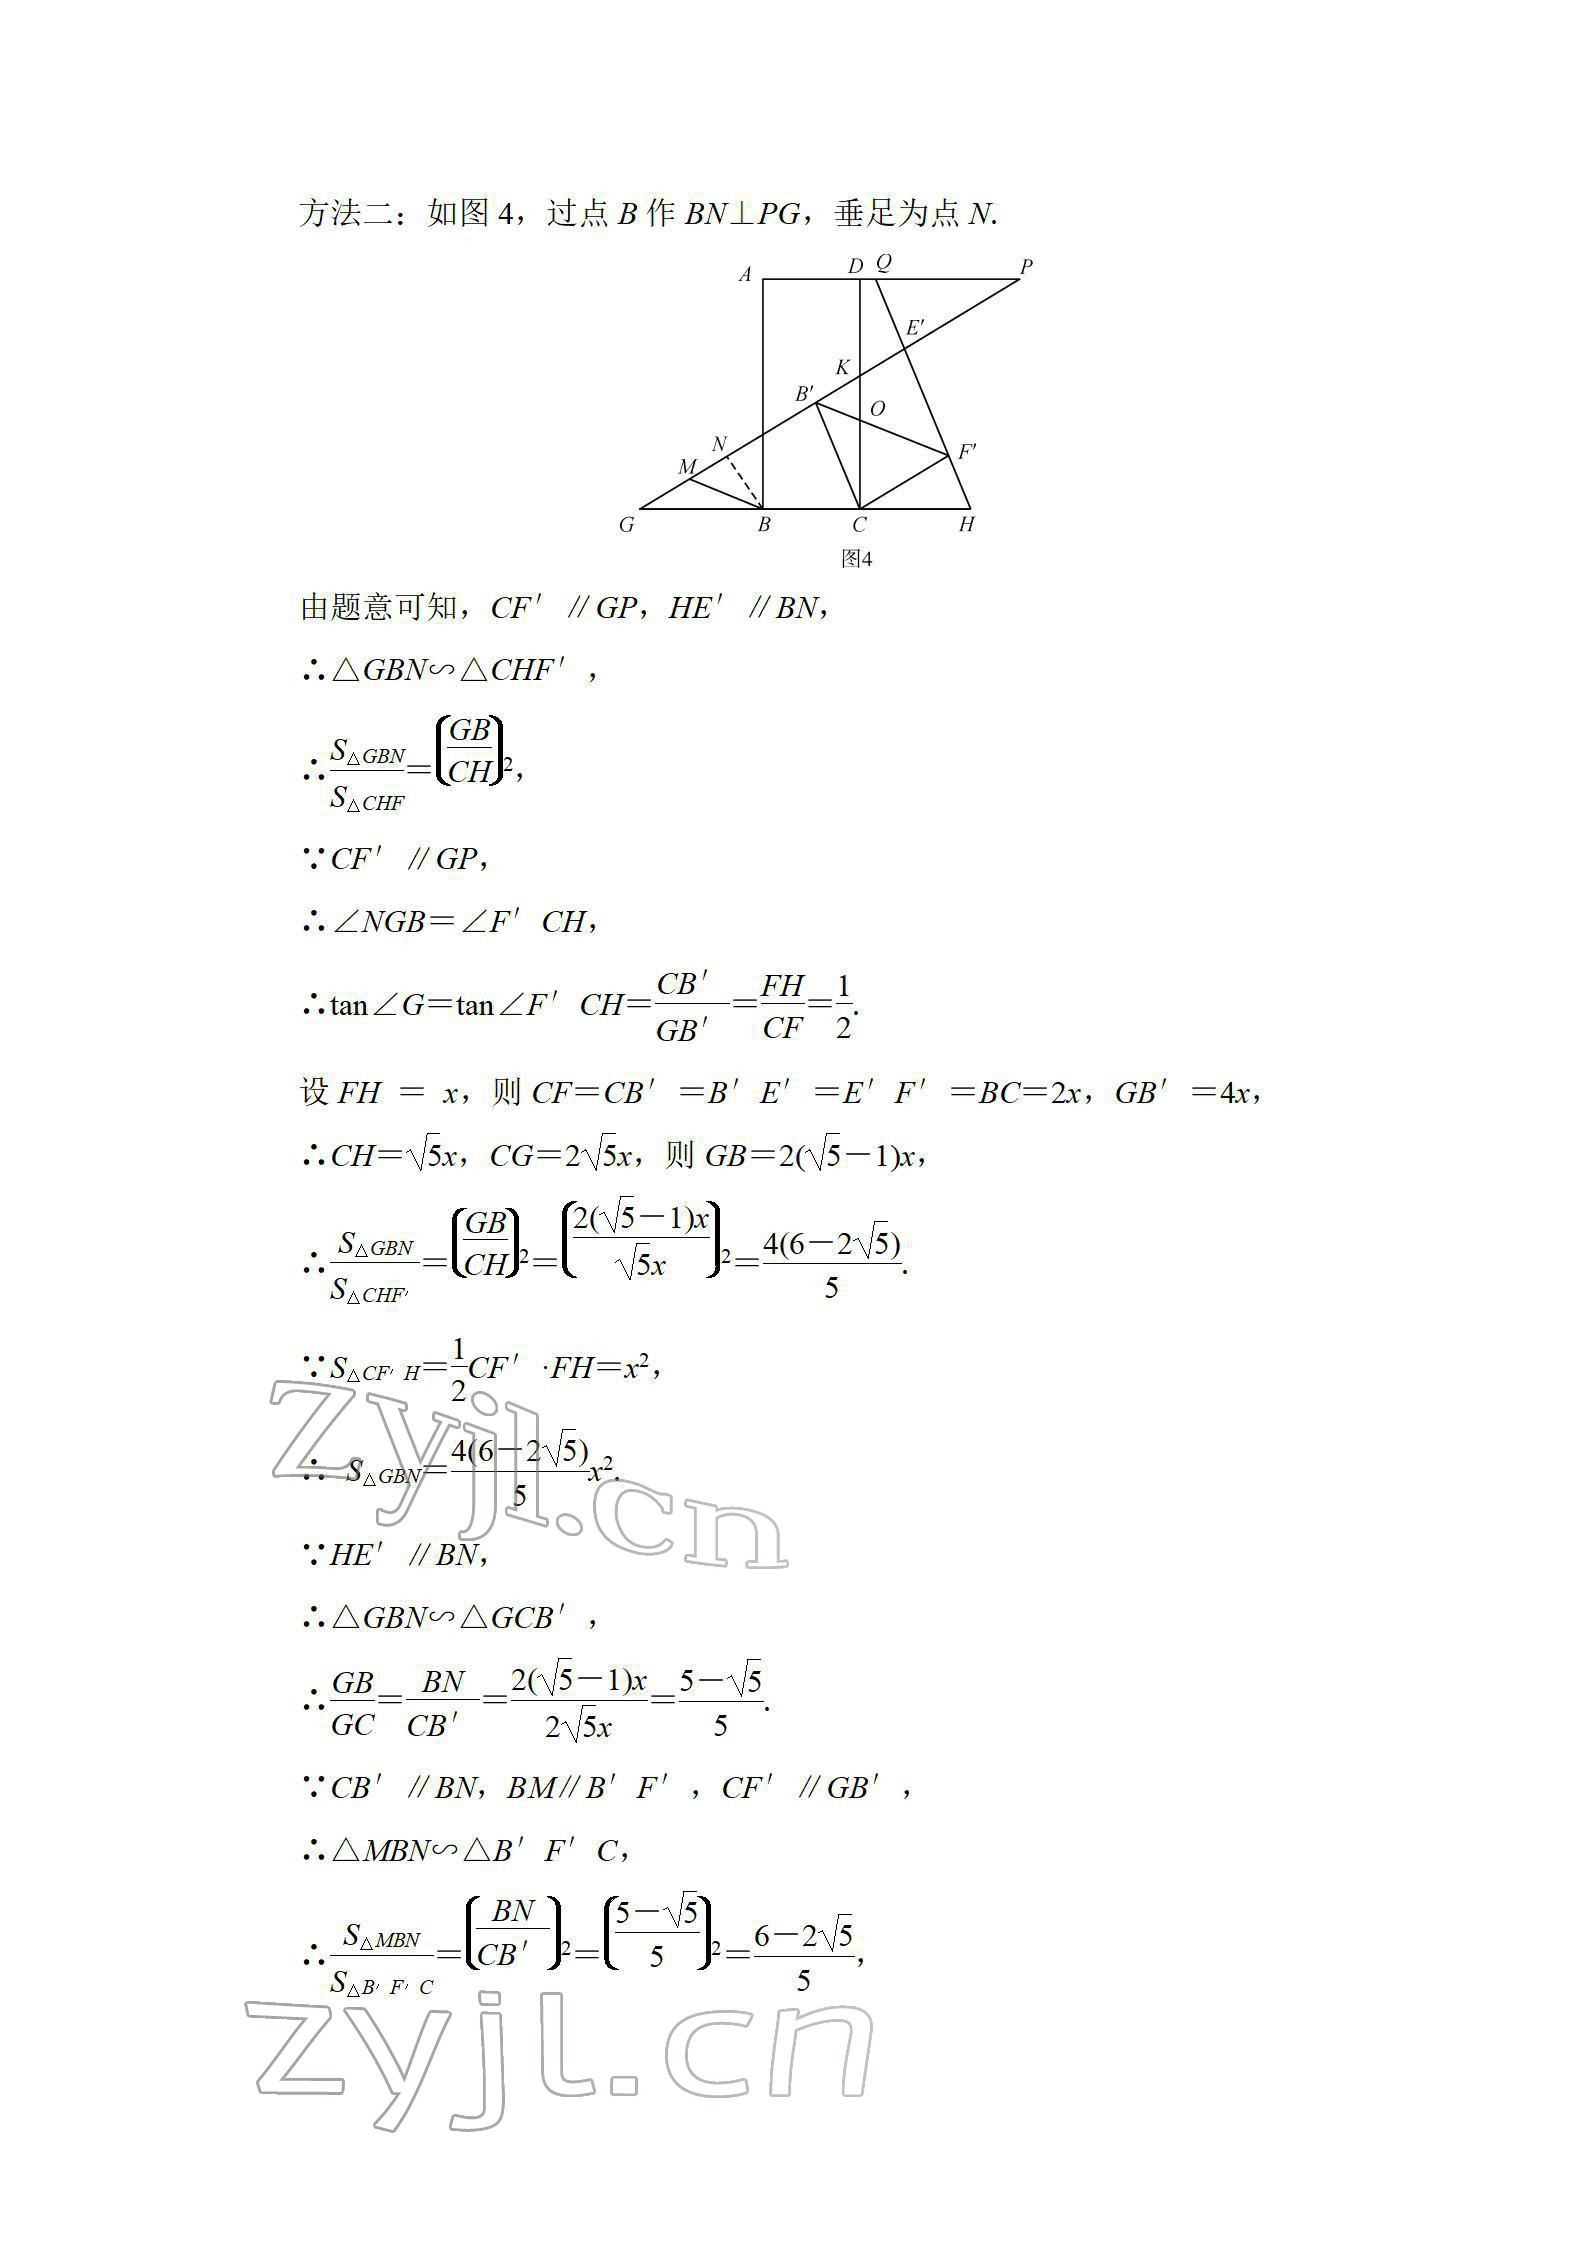 方法二：如图 4，过点 B 作 BN⊥PG，垂足为点 N.
A D Q P
E′
K
B′
O
N
F′
M
G B C H
图4
由题意可知，CF′ ∥GP，HE′ ∥BN，
∴△GBN∽△CHF′，
∴S△GBN/S△CHF=(GB/CH)2，
∵CF′ ∥GP，
∴∠NGB=∠F′ CH，
∴tan∠G=tan∠F′ CH=CB′/GB′=FH/CF=1/2.
设 FH = x，则 CF=CB′ =B′ E′ =E′ F′ =BC=2x，GB′ =4x，
∴CH=√5x，CG=2√5x，则 GB=2(√5-1)x，
∴S△GBN/S△CHF′=(GB/CH)2=(2(√5-1)x/√5x)2=4(6-2√5)/5.
∵S△CF′ H=1/2CF′ ·FH=x²，
∴ S△GBN=4(6-2√5)/5x².
∵HE′ ∥BN，
∴△GBN∽△GCB′，
∴GB/GC=BN/CB′=2(√5-1)x/2√5x=5-√5/5.
∵CB′ ∥BN，BM∥B′ F′，CF′ ∥GB′，
∴△MBN∽△B′ F′ C，
∴S△MBN/S△B′ F′ C=(BN/CB′)2=(5-√5/5)2=6-2√5/5，
zyjl.cn
zyjl.cn